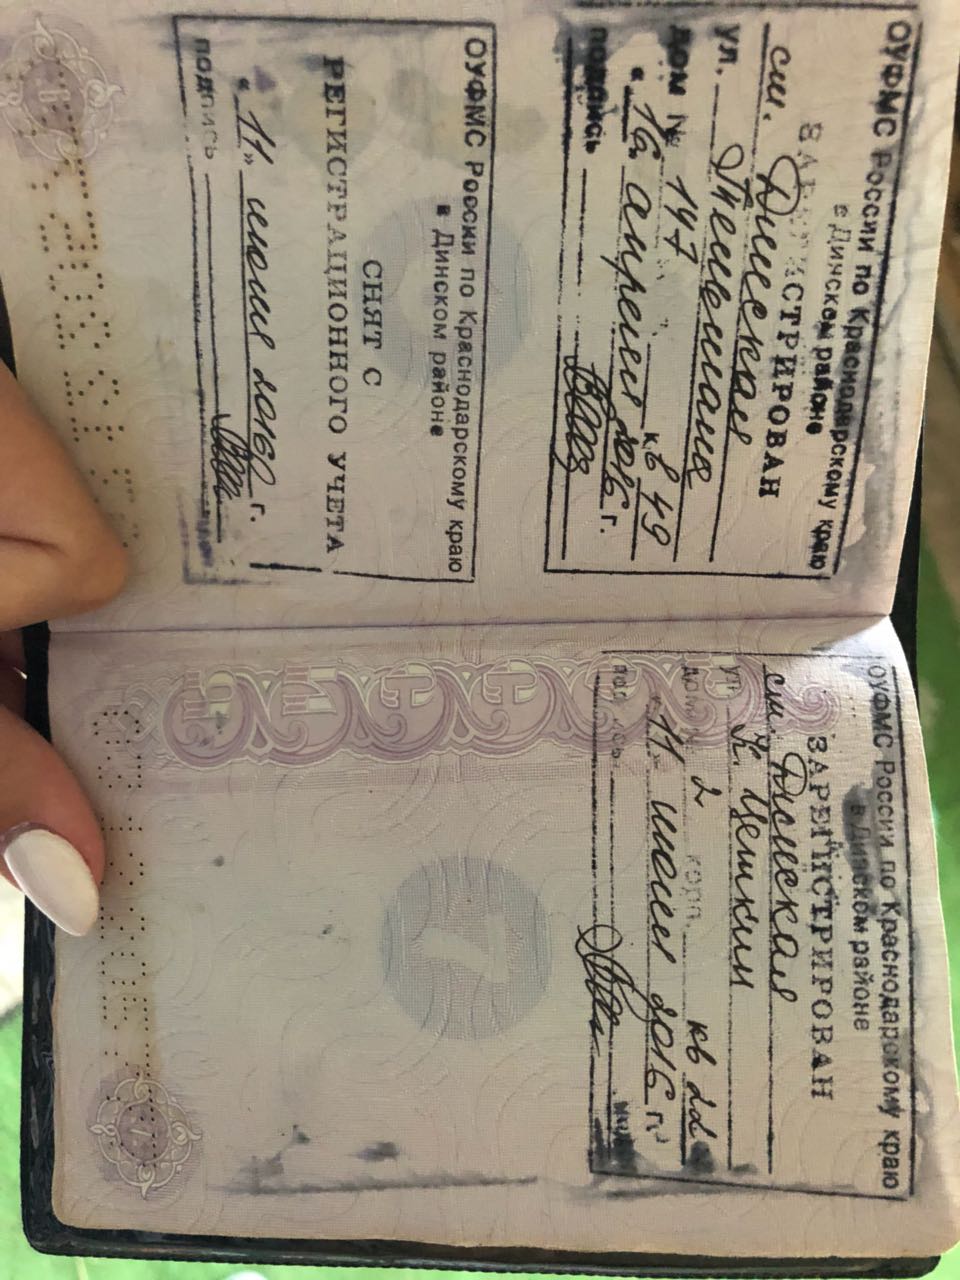 ОУФМС России по Краснодарскому краю
в Динском районе
ЗАРЕГИСТРИРОВАН
ст. Динская
ул.
дом № 147 кв 49
апреля 2016 г.
подпись
ОУФМС России по Краснодарскому краю
в Динском районе
СНЯТ С
РЕГИСТРАЦИОННОГО УЧЕТА
"11" июля 2016 г.
подпись
ОУФМС России по Краснодарскому краю
в Динском районе
ЗАРЕГИСТРИРОВАН
ст. Динская
ул. К. Цеткин
дом № 2 корп. кв 22
"11" июля 2016 г.
подпись
7